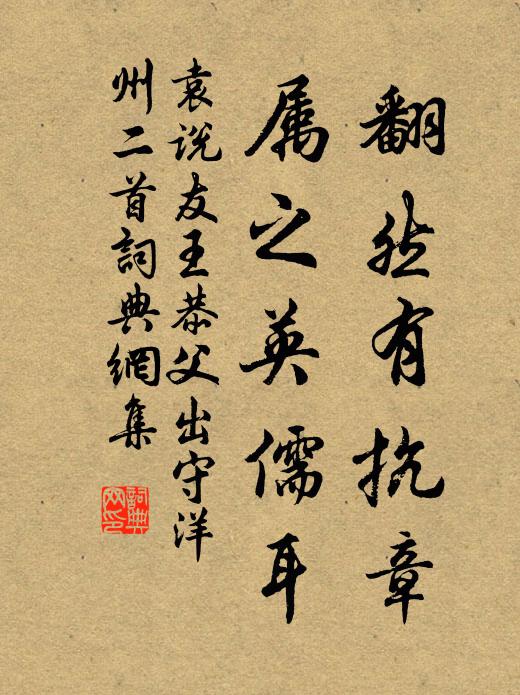 翻然有抗章
属之英儒耳
袁说友王恭父出守洋
州二首詞典網集
詞典网印